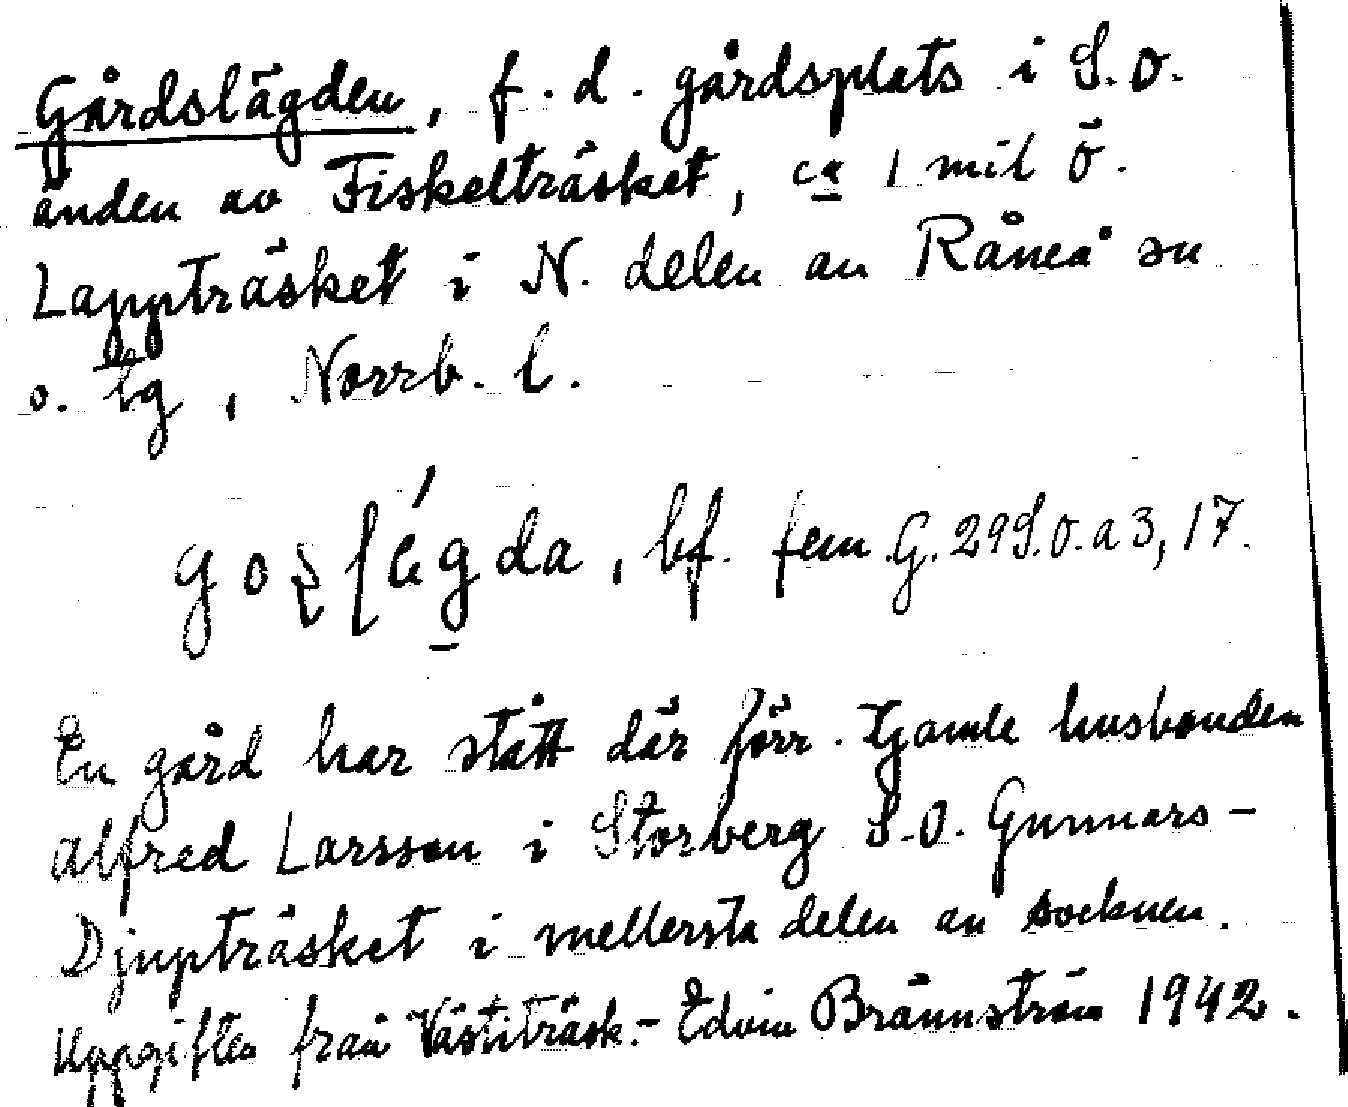 Gårdslägden, f.d. gårdsplats i S.O.
änden av Fiskelträsket, ca 1 mil ö.
Lappträsket i N. delen av Råneå sn
o. tg, Norrb. l.
bf. fem. G. 29 S.O. a 3, 17.
En gård har stått där förr. Gamle husbonden
Alfred Larsson i Storberg S.O. Gunnars-
Djupträsket i mellersta delen av socknen.
Uppgiften från Västiträsk. - Edvin Brännström 1942.